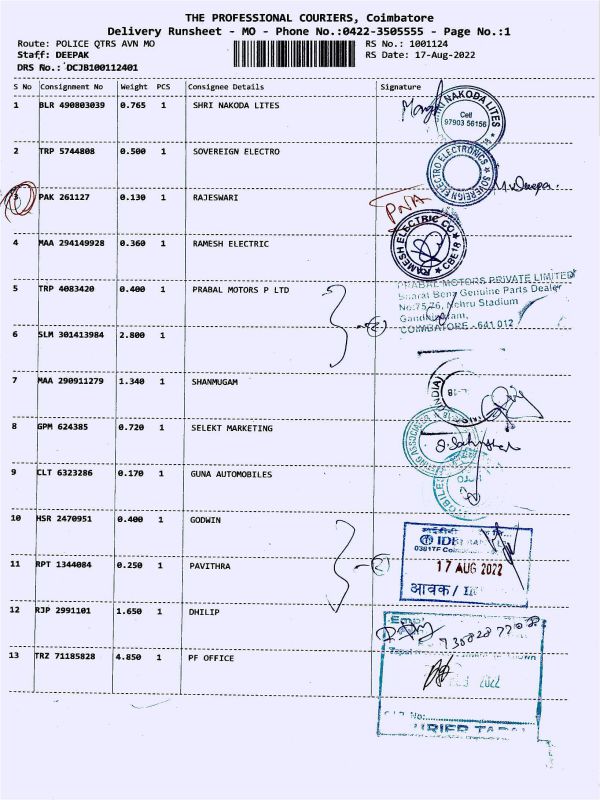 THE PROFESSIONAL COURIERS, Coimbatore
Delivery Runsheet - MO - Phone No.:0422-3505555 - Page No.:1
Route: POLICE QTRS AVN MO RS No.: 1001124
Staff: DEEPAK RS Date: 17-Aug-2022
DRS No.: DCJB100112401
S No Consignment No Weight PCS Consignee Details Signature
1 BLR 490803039 0.765 1 SHRI NAKODA LITES
SHRI NAKODA LITES
Cell
97903 56156
2 TRP 5744808 0.500 1 SOVEREIGN ELECTRO
SOVEREIGN ELECTRO ELECTRONICS
3 PAK 261127 0.130 1 RAJESWARI
PNA
4 MAA 294149928 0.360 1 RAMESH ELECTRIC
RAMESH ELECTRIC CO
CBE18
5 TRP 4083420 0.400 1 PRABAL MOTORS P LTD
PRABAL MOTORS PRIVATE LIMITED
Bharat Benz Genuine Parts Dealer
No:75,76, Nehru Stadium
Gandhipuram,
COIMBATORE - 641 012
6 SLM 301413984 2.800 1
(2)
7 MAA 290911279 1.340 1 SHANMUGAM
(INDIA)
8 GPM 624385 0.720 1 SELEKT MARKETING
9 CLT 6323286 0.170 1 GUNA AUTOMOBILES
10 HSR 2470951 0.400 1 GODWIN
IDBI
11 RPT 1344084 0.250 1 PAVITHRA
(2)
17 AUG 2022
आवक/
12 RJP 2991101 1.650 1 DHILIP
13 TRZ 71185828 4.850 1 PF OFFICE
2022
No: